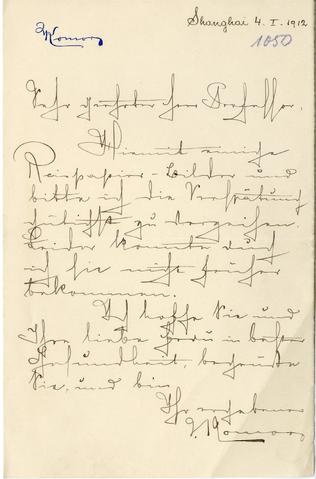 Komor
Shanghai 4. I. 1912
1050
Sehr geehrter Herr Professor.
Hiemit einige
Reispapier-Bilder und
bitte ich die Verspätung
gütigst zu verzeihen.
Leider konnte
ich sie nicht früher
bekommen.
Ich hoffe Sie und
Ihre liebe Frau in bester
Gesundheit, begrüsse
Sie, und bin
Ihr ergebener
Komor